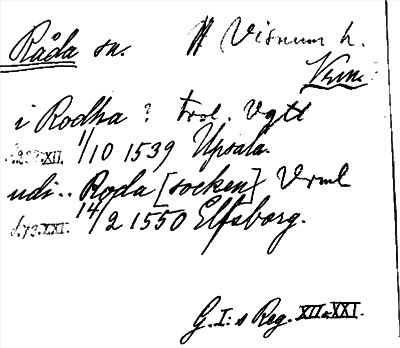 Råda sn. # Visnum h.
Vrm.
i Rodha ? trol. Vgtl
XII. 1/10 1539 Upsala.
udi.. Roda [socken] Vrml
d.73.XXI. 14/2 1550 Elfsborg.
G. I:s Reg. XII o. XXI.